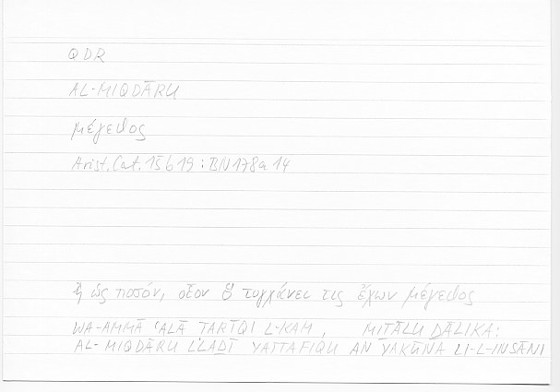 QDR
AL-MIQDĀRU
μέγεθος
Arist. Cat. 15b19 : BN178a14
ἢ ὡς ποσόν, οἷον ὃ τυγχάνει τις ἔχων μέγεθος
WA-AMMĀ ʿALĀ ṬARĪQI L-KAM, MIṮĀLU ḎĀLIKA:
AL-MIQDĀRU LLAḎĪ YATTAFIQU AN YAKŪNA LI-L-INSĀNI